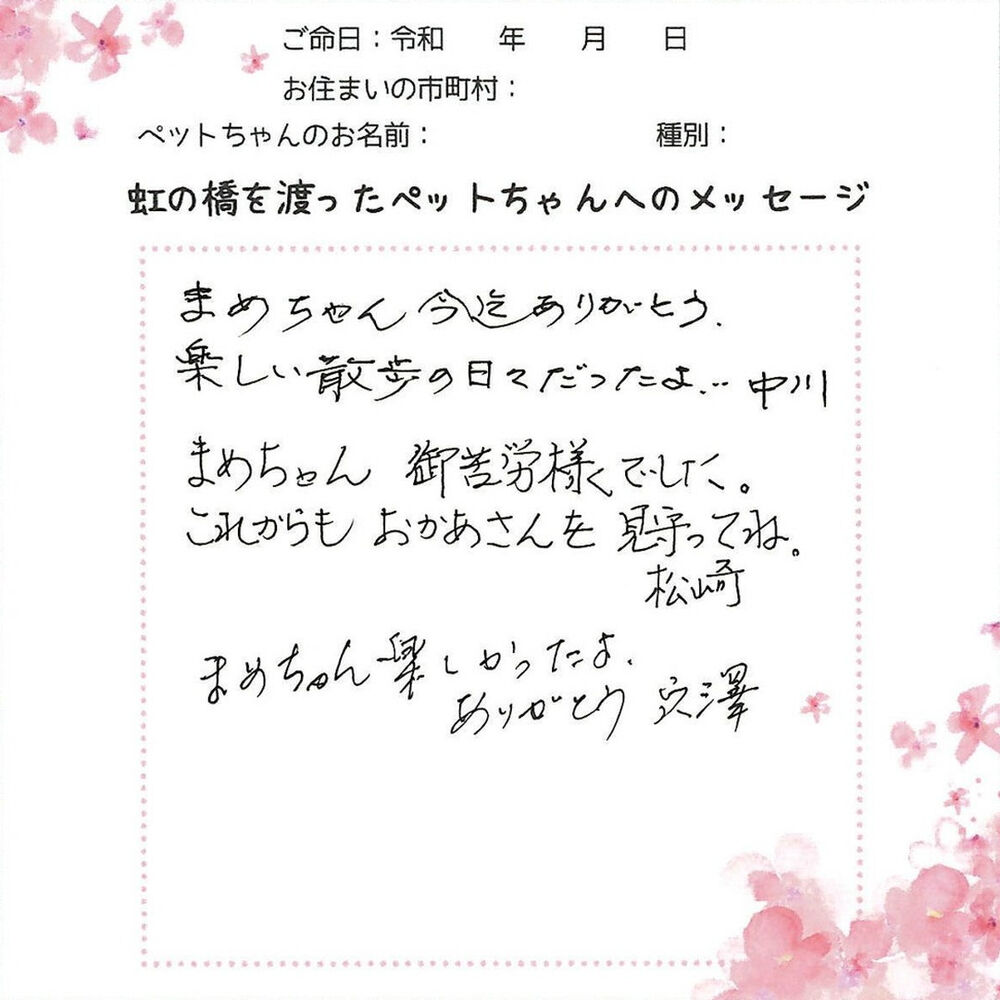 ご命日：令和　　年　　月　　日
お住まいの市町村：
ペットちゃんのお名前：　　　　　　　　種別：
虹の橋を渡ったペットちゃんへのメッセージ
まめちゃん 今迄ありがとう.
楽しい散歩の日々だったよ… 中川
まめちゃん 御苦労様でした。
これからも おかあさんを 見守ってね。
松崎
まめちゃん 楽しかったよ.
ありがとう 宍澤